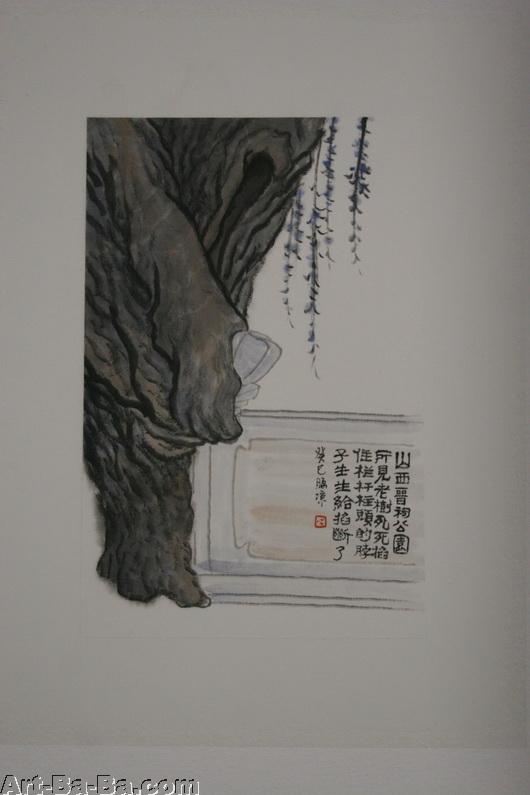 山西晋祠公園
所見老樹死死掐
住栏杆柱頭的脖
子生生給掐斷了
癸巳
Art-Ba-Ba.com